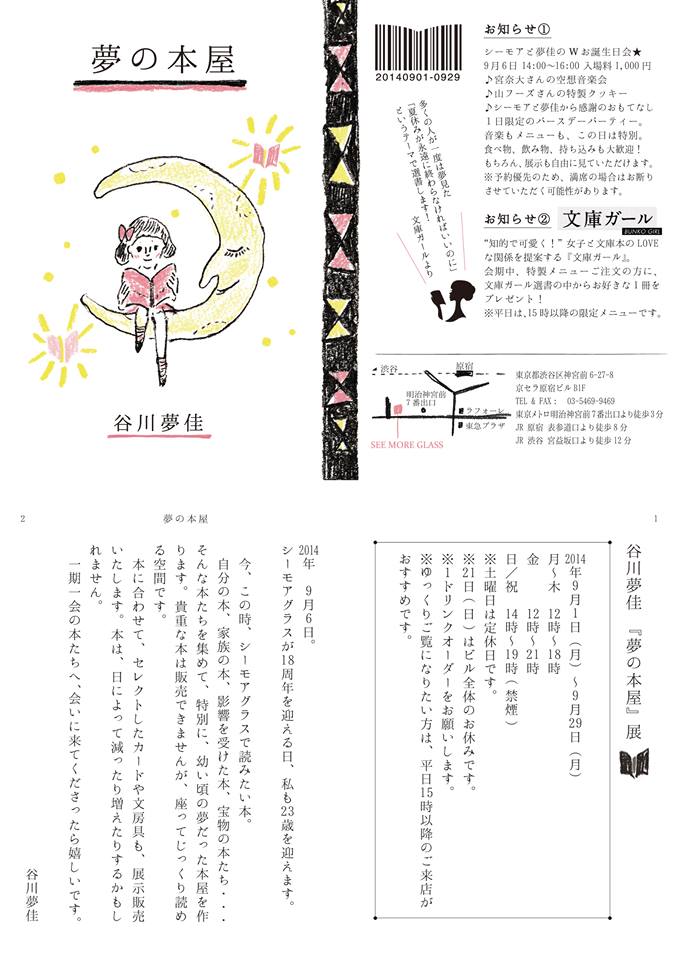 夢の本屋
谷川夢佳
20140901-0929
多くの人が一度は夢見た
『夏休みが永遠に終わらなければいいのに』
というテーマで選書します！
文庫ガールより
お知らせ①
シーモアと夢佳の W お誕生日会★
9月6日 14:00〜16:00 入場料 1,000 円
♪宮奈大さんの空想音楽会
♪山フーズさんの特製クッキー
♪シーモアと夢佳から感謝のおもてなし
1日限定のバースデーパーティー。
音楽もメニューも、この日は特別。
食べ物、飲み物、持ち込みも大歓迎！
もちろん、展示も自由に見ていただけます。
※予約優先のため、満席の場合はお断り
させていただく可能性があります。
お知らせ② 文庫ガール
BUNKO GIRL
“知的で可愛く！” 女子と文庫本の LOVE
な関係を提案する『文庫ガール』。
会期中、特製メニューご注文の方に、
文庫ガール選書の中からお好きな1冊を
プレゼント！
※平日は、15時以降の限定メニューです。
渋谷
原宿
明治神宮前
7番出口
ラフォーレ
東急プラザ
SEE MORE GLASS
東京都渋谷区神宮前 6-27-8
京セラ原宿ビル B1F
TEL & FAX： 03-5469-9469
東京メトロ明治神宮前7番出口より徒歩3分
JR 原宿 表参道口より徒歩8分
JR 渋谷 宮益坂口より徒歩12分
1
谷川夢佳 『夢の本屋』展
2014年9月1日（月）〜9月29日（月）
月〜木 12時〜18時
金 12時〜21時
日／祝 14時〜19時（禁煙）
※土曜日は定休日です。
※21日（日）はビル全体のお休みです。
※1ドリンクオーダーをお願いします。
※ゆっくりご覧になりたい方は、平日15時以降のご来店が
おすすめです。
2
夢の本屋
2014年 9月6日。
シーモアグラスが18周年を迎える日、私も23歳を迎えます。
今、この時、シーモアグラスで読みたい本。
自分の本、家族の本、影響を受けた本、宝物の本たち・・・
そんな本たちを集めて、特別に、幼い頃の夢だった本屋を作
ります。貴重な本は販売できませんが、座ってじっくり読め
る空間です。
本に合わせて、セレクトしたカードや文房具も、展示販売
いたします。本は、日によって減ったり増えたりするかもし
れません。
一期一会の本たちへ、会いに来てくださったら嬉しいです。
谷川夢佳